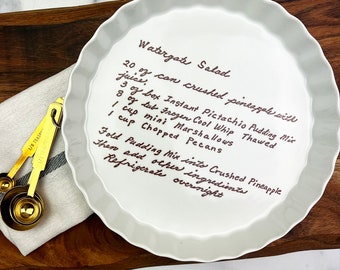 Watergate Salad
20 oz can crushed pineapple with
juice.
3 oz box Instant Pistachio Pudding Mix
8 oz tub Frozen Cool Whip Thawed
1 cup mini Marshmallows
1 cup Chopped Pecans
Fold Pudding Mix into Crushed Pineapple
Then add other ingredients
Refrigerate overnight